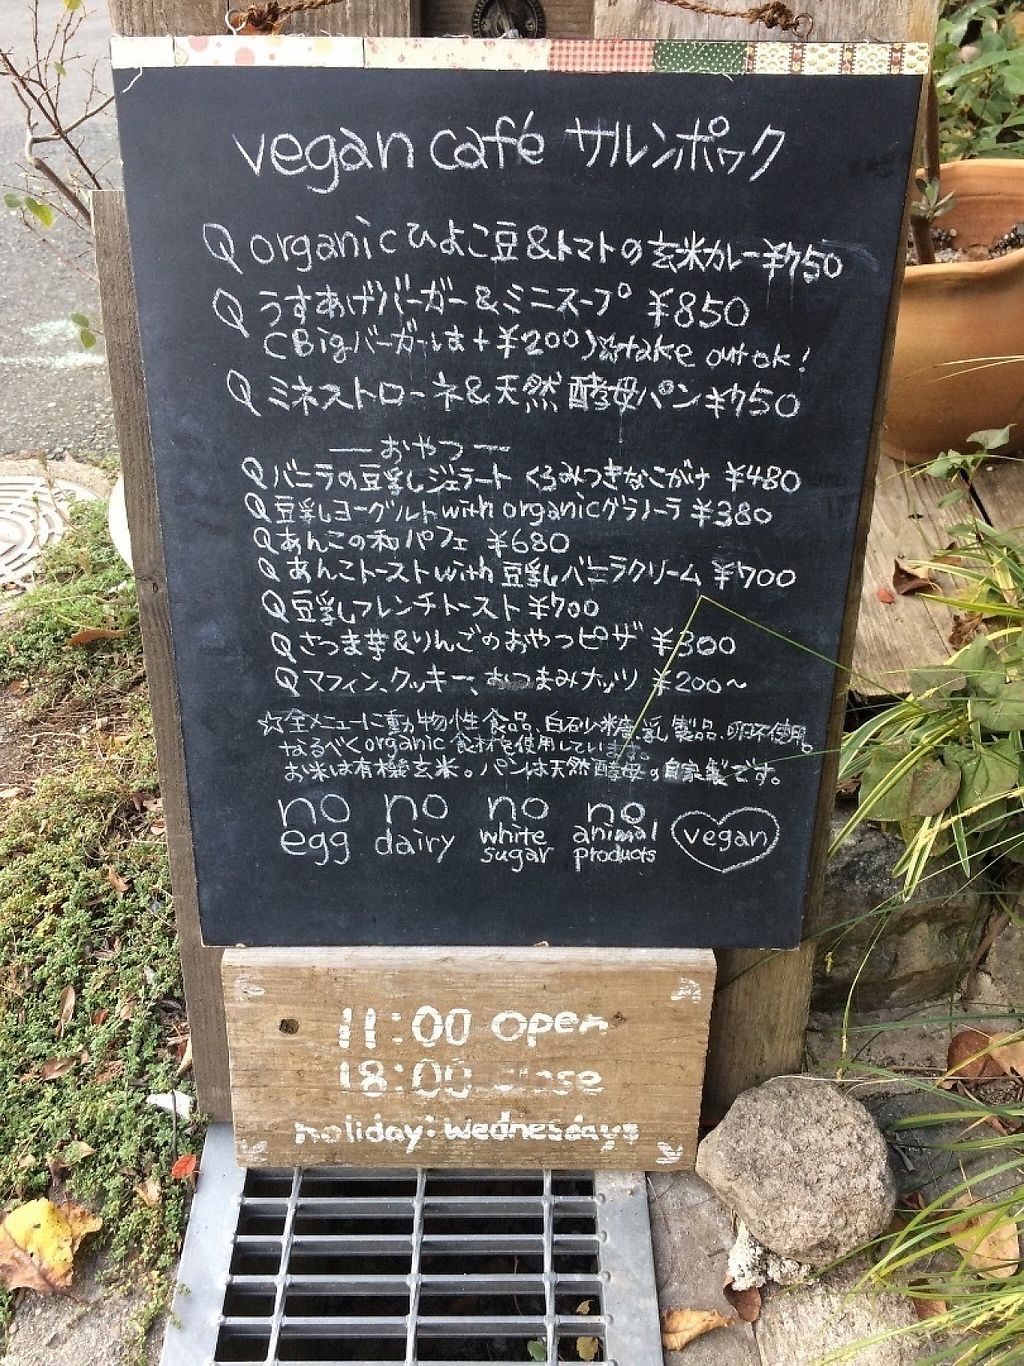 vegan café サルンポック
organic ひよこ豆&トマトの玄米カレー ¥750
うすあげバーガー&ミニスープ ¥850
(Bigバーガーは+¥200)☆take out ok!
ミネストローネ&天然酵母パン ¥750
—おやつ—
バニラの豆乳ジェラート くるみつきなこがけ ¥480
豆乳ヨーグルト with organicグラノーラ ¥380
あんこの和パフェ ¥680
あんこトースト with 豆乳バニラクリーム ¥700
豆乳フレンチトースト ¥700
さつま芋&りんごのおやつピザ ¥300
マフィン、クッキー、おつまみナッツ ¥200〜
☆全メニューに動物性食品、白砂糖、乳製品、卵不使用。
なるべくorganic食材を使用しています。
お米は有機玄米。パンは天然酵母の自家製です。
no no no no
egg dairy white sugar animal products vegan
11:00 open
18:00 close
holiday: wednesdays